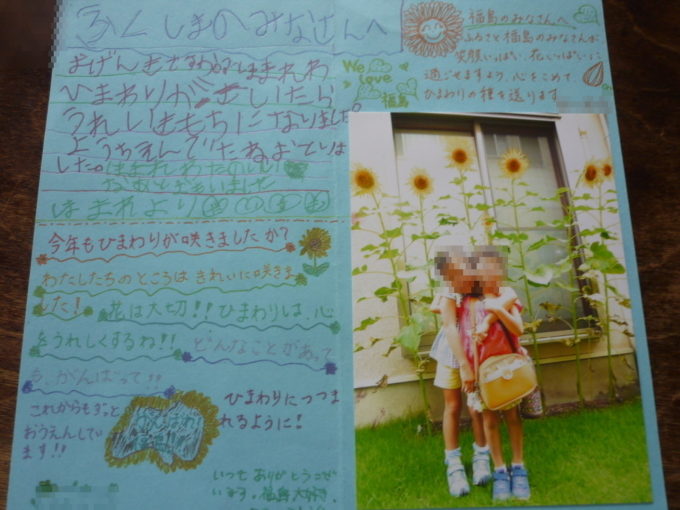 ふくしまのみなさんへ
おげんきですか はまれわ
ひまわりが さいたら
うれしいきもちになりました。
ようちえんでたねお
した。
はまれより
今年もひまわりが咲きましたか？
わたしたちのところは きれいに咲きま
した！ 花は大切！！ひまわりは、心
をうれしくするね！！ どんなことがあって
も、がんばって！！
これからもずっと
おうえんしてい
ます！！
ひまわりにつつま
れるように！
いつもありがとうござ
います。福島大好き。
福島のみなさんへ
ふるさと福島のみなさんが
笑顔いっぱい、花いっぱいに
過ごせますよう、心をこめて
ひまわりの種を送ります
We
love
福島